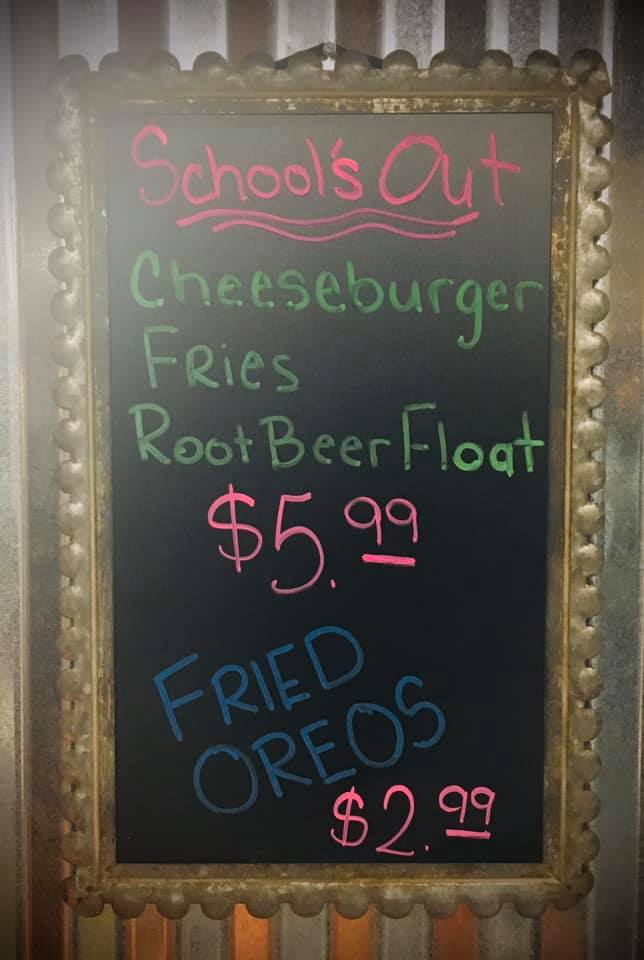 School's Out
Cheeseburger
Fries
Root Beer Float
$5.99
FRIED
OREOS
$2.99